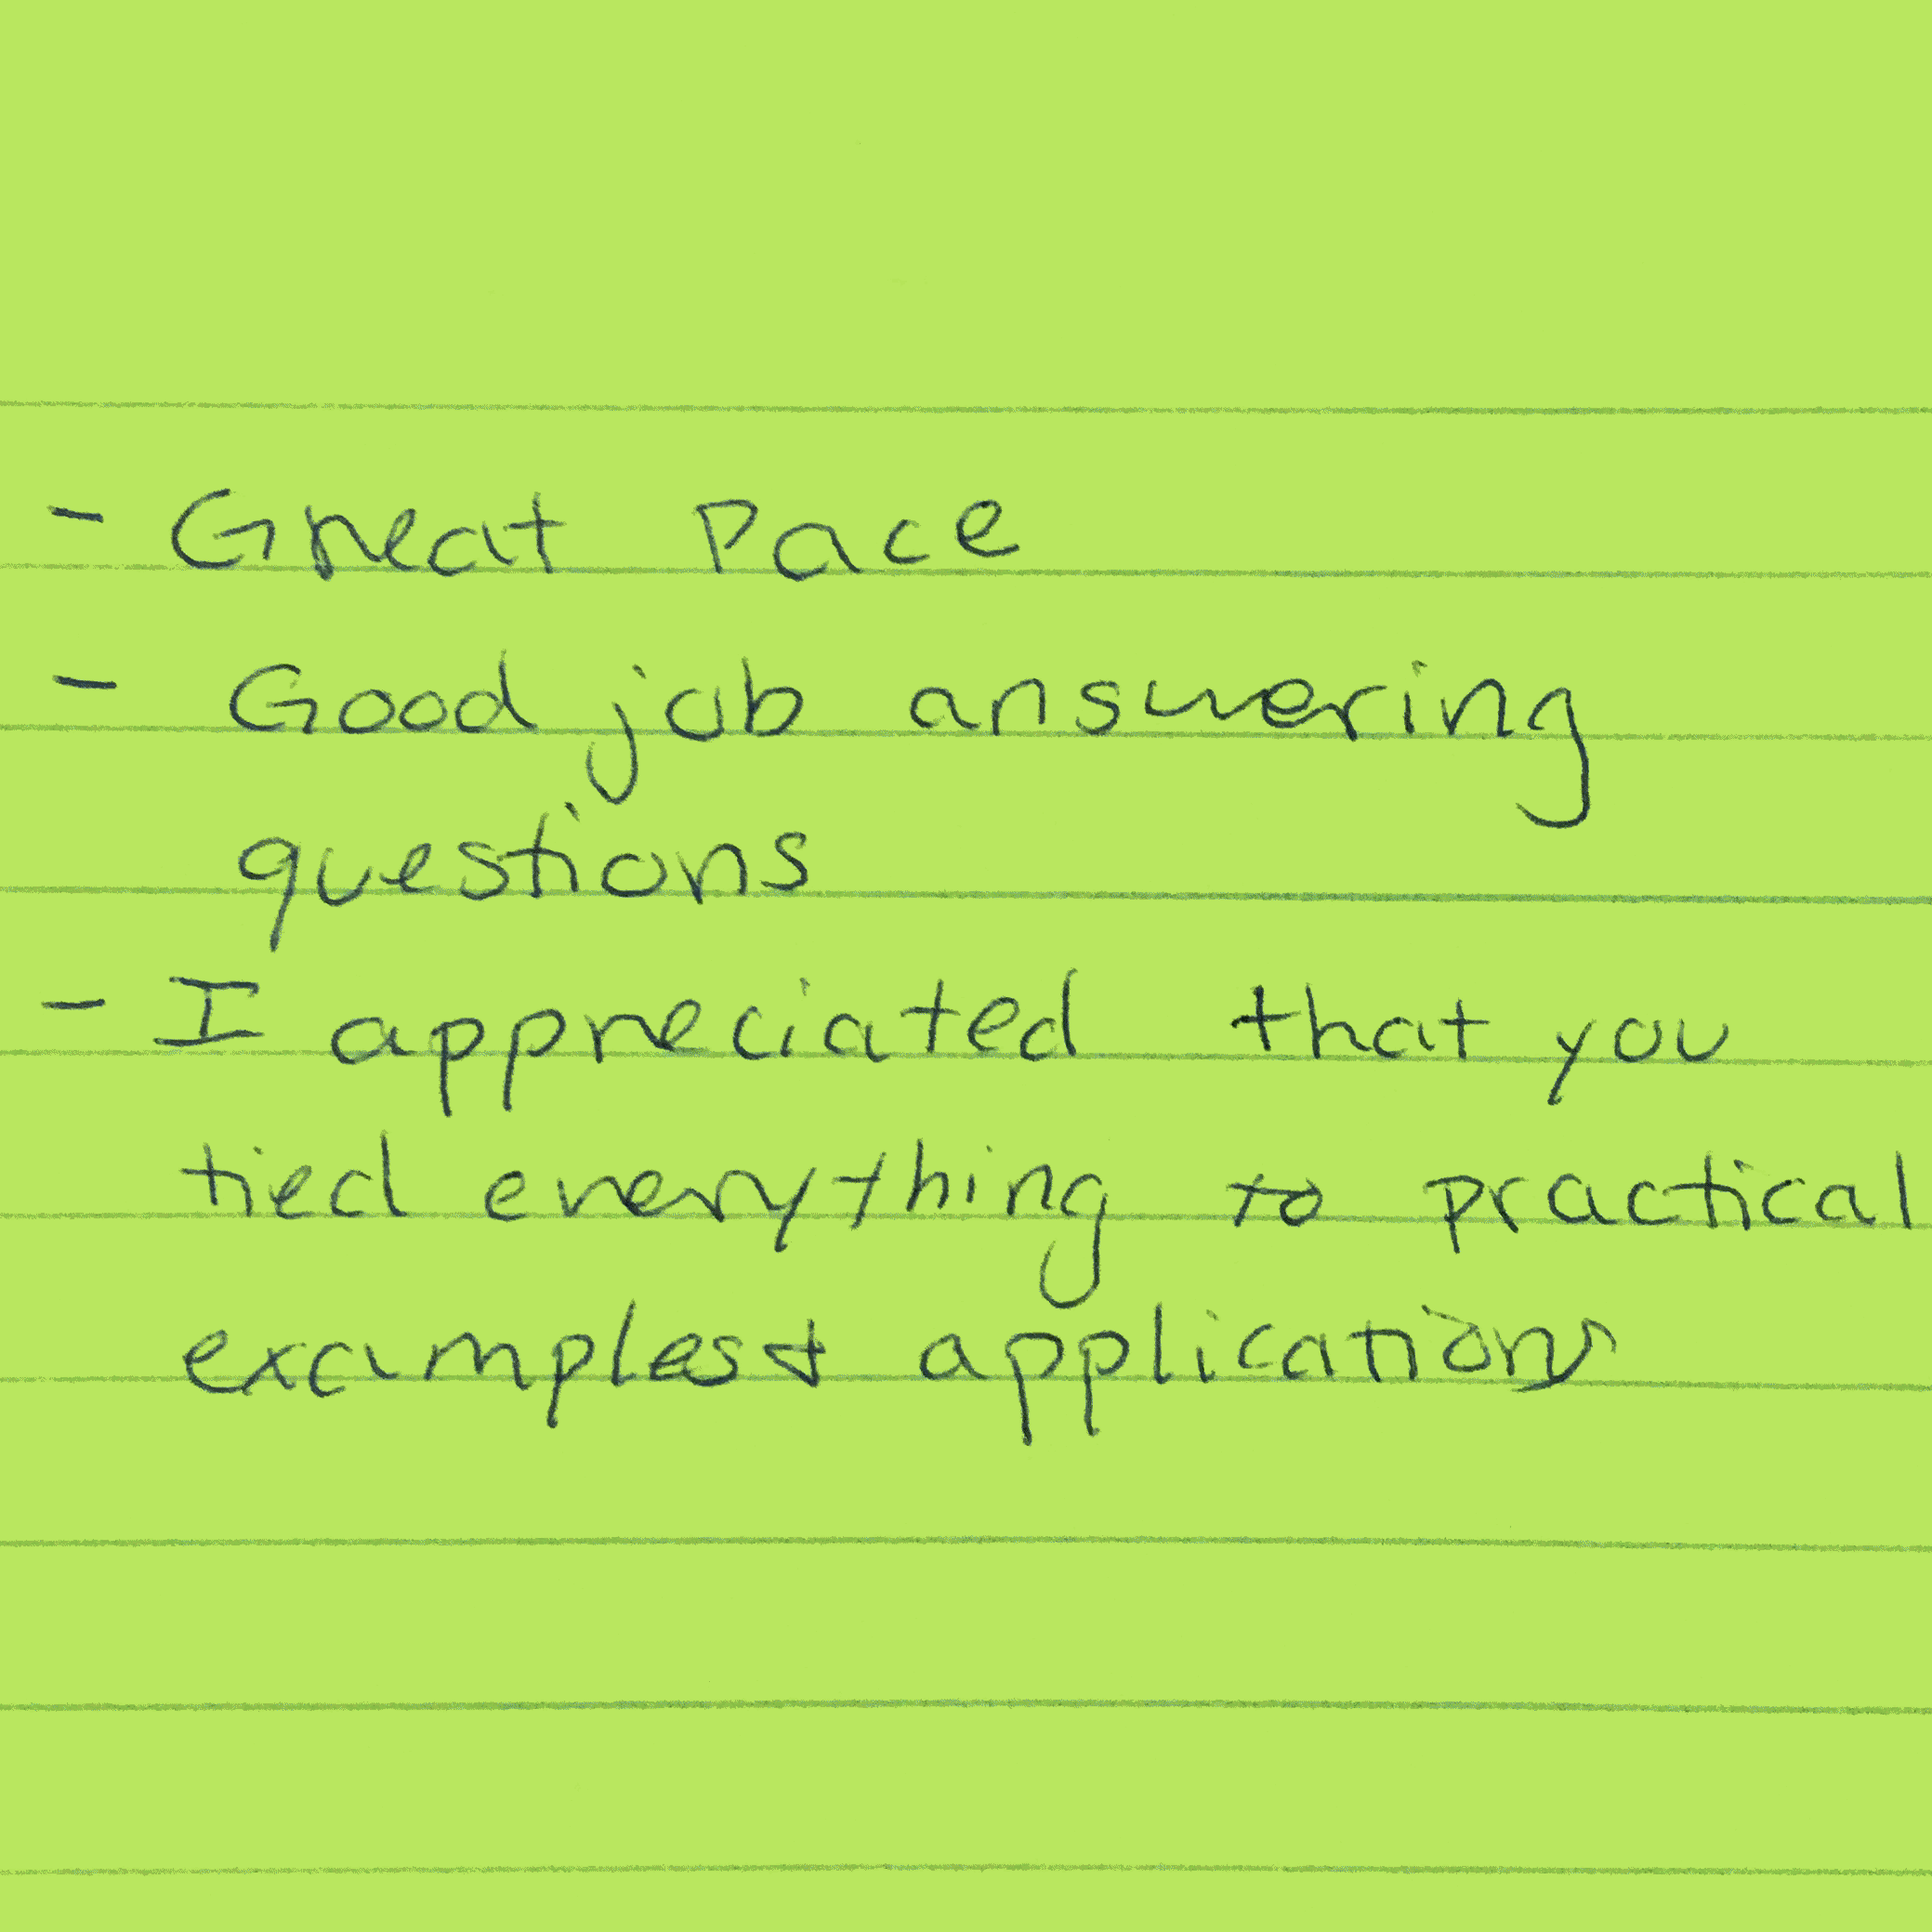 - Great Pace
- Good job answering
questions
- I appreciated that you
tied everything to practical
examples + applications